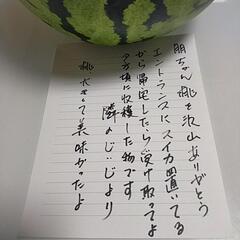 朋ちゃん桃を沢山ありがとう
エントランスにスイカ置いてる
から帰宅したら受け取ってよ
夕方頃に収穫した物です
隣のじいじより
桃大きくて美味かったよ